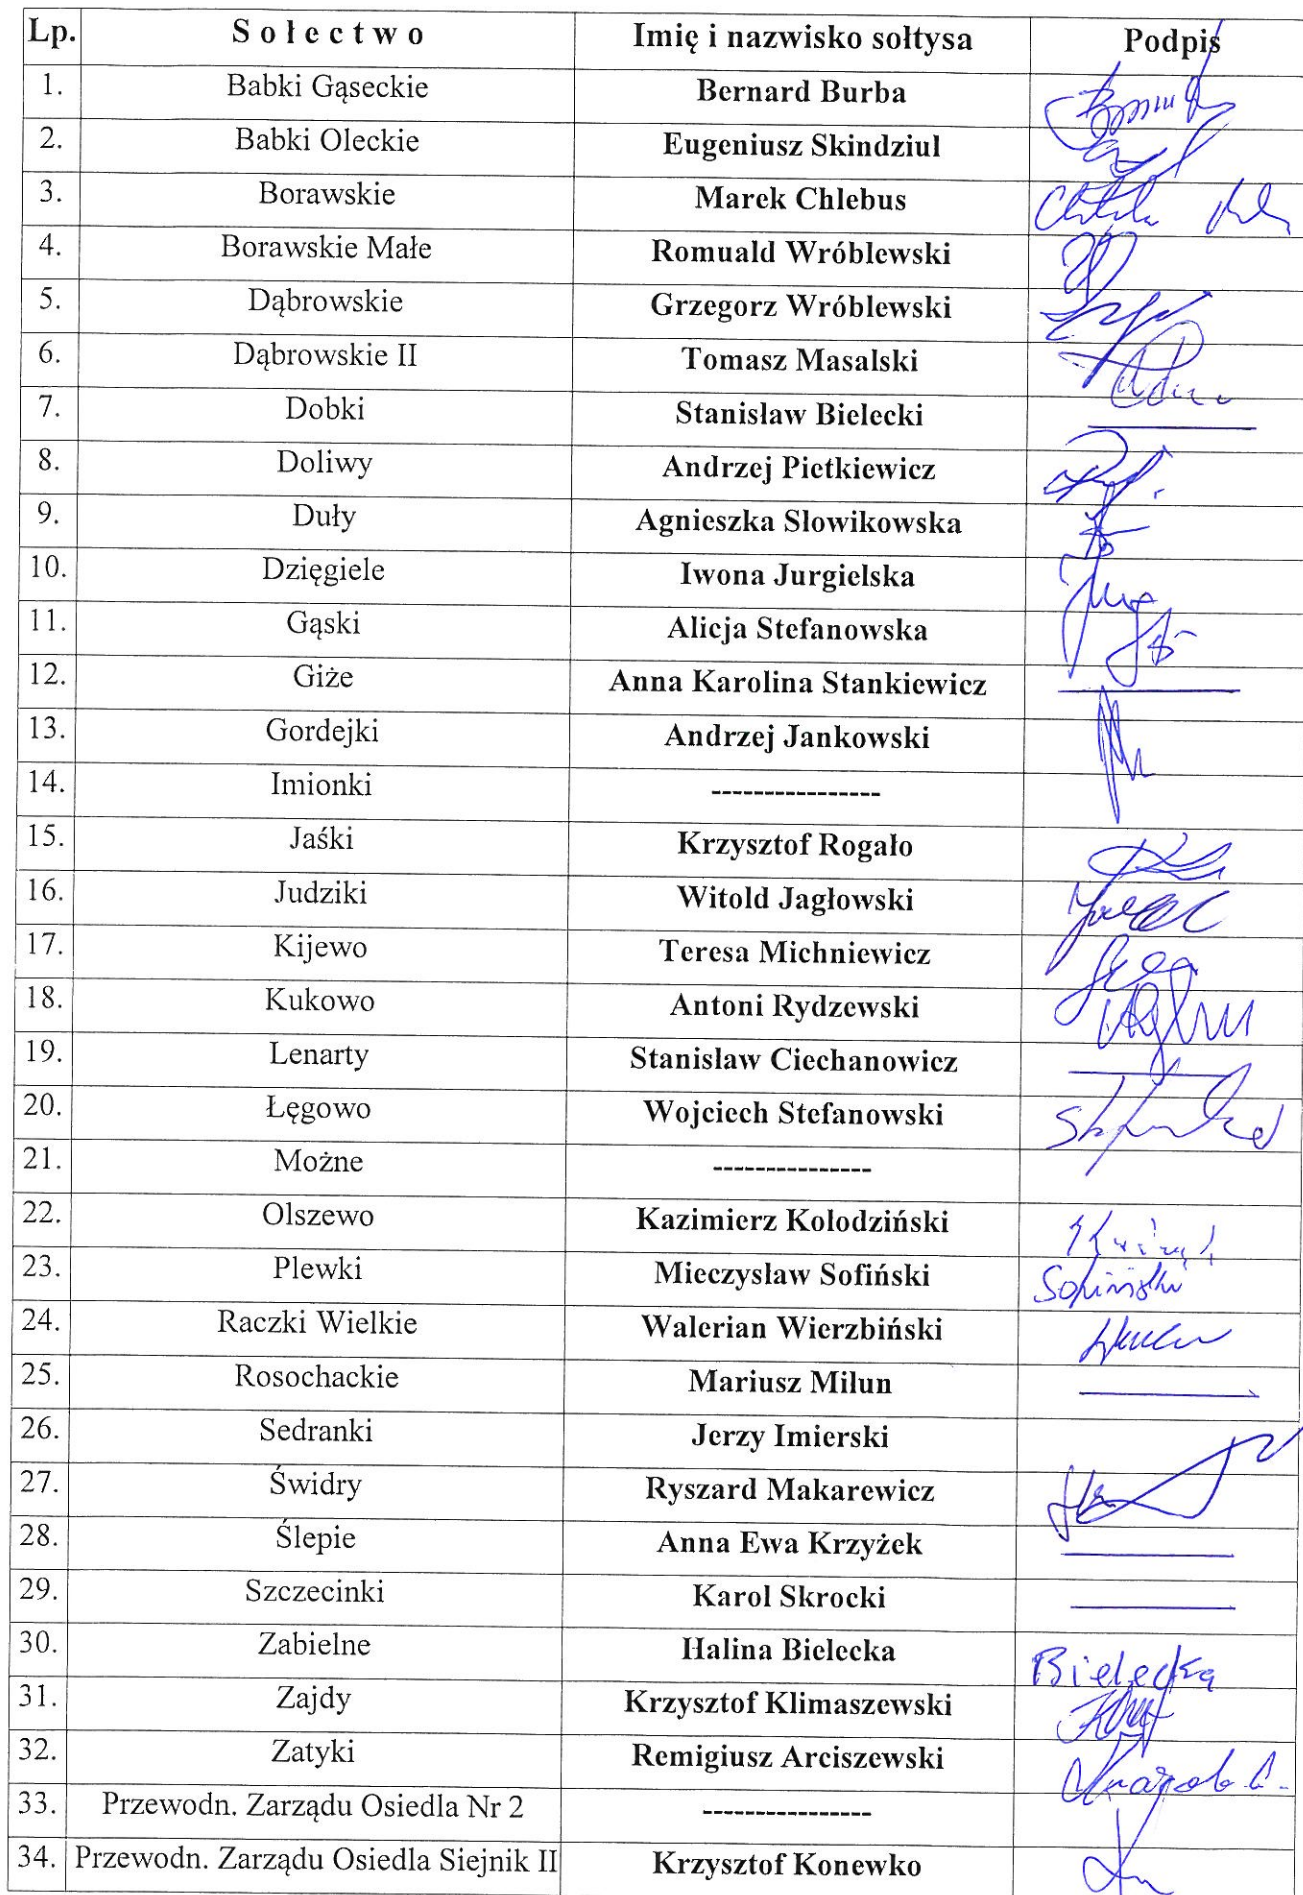 Lp. Sołectwo Imię i nazwisko sołtysa Podpis
1. Babki Gąseckie Bernard Burba
2. Babki Oleckie Eugeniusz Skindziul
3. Borawskie Marek Chlebus
4. Borawskie Małe Romuald Wróblewski
5. Dąbrowskie Grzegorz Wróblewski
6. Dąbrowskie II Tomasz Masalski
7. Dobki Stanisław Bielecki
8. Doliwy Andrzej Pietkiewicz
9. Duły Agnieszka Słowikowska
10. Dzięgiele Iwona Jurgielska
11. Gąski Alicja Stefanowska
12. Giże Anna Karolina Stankiewicz
13. Gordejki Andrzej Jankowski
14. Imionki ----------------
15. Jaśki Krzysztof Rogało
16. Judziki Witold Jagłowski
17. Kijewo Teresa Michniewicz
18. Kukowo Antoni Rydzewski
19. Lenarty Stanisław Ciechanowicz
20. Łęgowo Wojciech Stefanowski
21. Możne ---------------
22. Olszewo Kazimierz Kołodziński
23. Plewki Mieczysław Sofiński Sofiński
24. Raczki Wielkie Walerian Wierzbiński
25. Rosochackie Mariusz Milun
26. Sedranki Jerzy Imierski
27. Świdry Ryszard Makarewicz
28. Ślepie Anna Ewa Krzyżek
29. Szczecinki Karol Skrocki
30. Zabielne Halina Bielecka Bielecka
31. Zajdy Krzysztof Klimaszewski
32. Zatyki Remigiusz Arciszewski
33. Przewodn. Zarządu Osiedla Nr 2 ----------------
34. Przewodn. Zarządu Osiedla Siejnik II Krzysztof Konewko